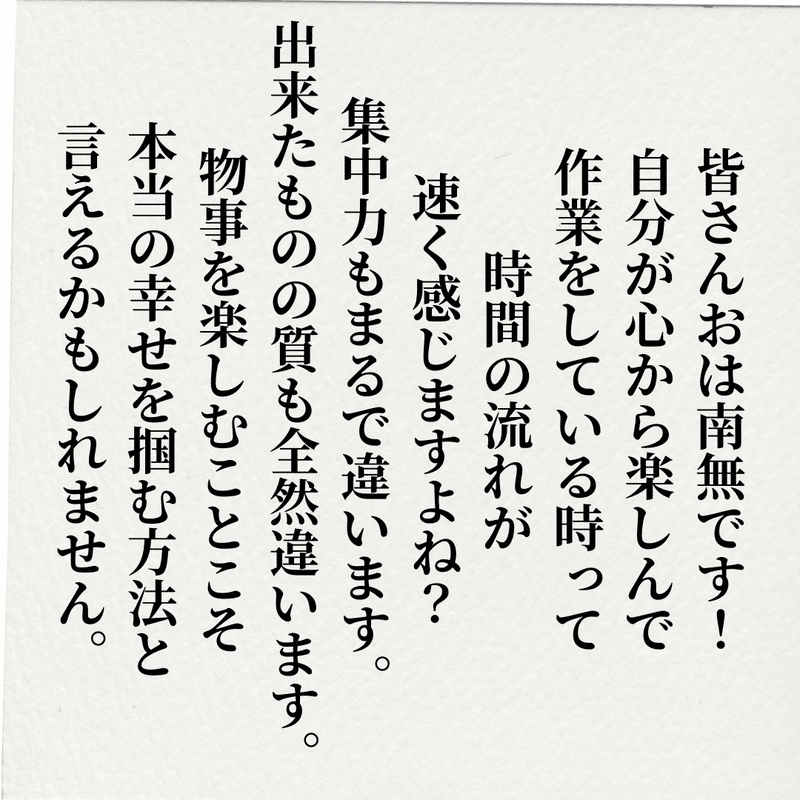 皆さんおは南無です！
自分が心から楽しんで
作業をしている時って
時間の流れが
速く感じますよね？
集中力もまるで違います。
出来たものの質も全然違います。
物事を楽しむことこそ
本当の幸せを掴む方法と
言えるかもしれません。